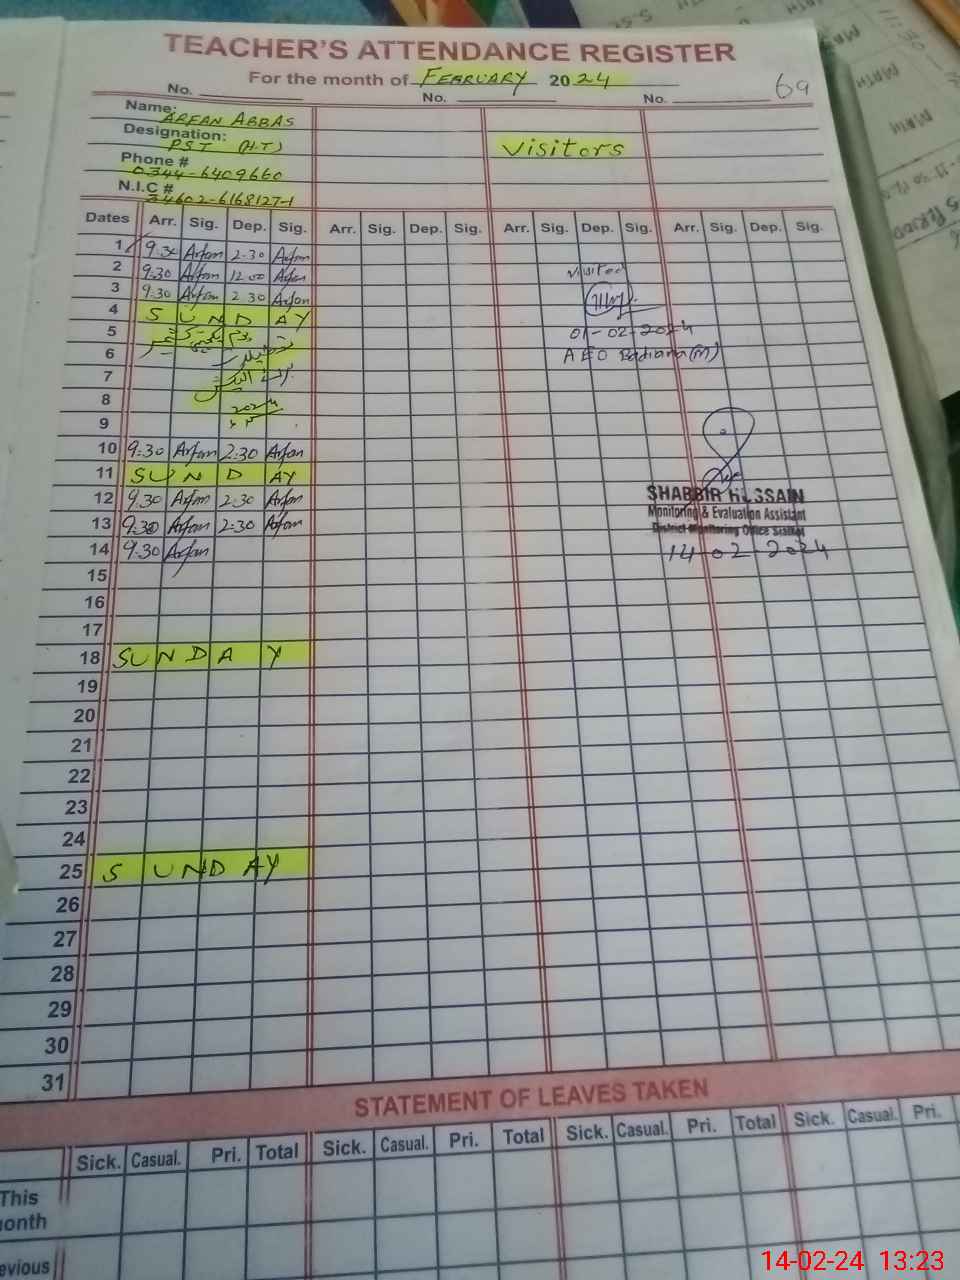 TEACHER'S ATTENDANCE REGISTER
For the month of FEBRUARY 2024
69
No. No. No.
Name: ARFAN ABBAS
Designation: PST (H.T)
Visitors
Phone # 0344-6409660
N.I.C # 34602-6168127-1
Dates Arr. Sig. Dep. Sig. Arr. Sig. Dep. Sig. Arr. Sig. Dep. Sig. Arr. Sig. Dep. Sig.
1 9:30 Arfan 2:30 Arfan
2 9:30 Arfan 12:00 Arfan visited
3 9:30 Arfan 2:30 Arfan
4 SUNDAY
5 01-02-2024
6 AEO Badiana (M)
7
8 2024
9
10 9:30 Arfan 2:30 Arfan
11 SUNDAY
12 9:30 Arfan 2:30 Arfan SHABBIR HUSSAIN
Monitoring & Evaluation Assistant
13 9:30 Arfan 2:30 Arfan District Monitoring Office Sialkot
14 9:30 Arfan 14-02-2024
15
16
17
18 SUNDAY
19
20
21
22
23
24
25 SUNDAY
26
27
28
29
30
31
STATEMENT OF LEAVES TAKEN
Sick. Casual. Pri. Total Sick. Casual. Pri. Total Sick. Casual. Pri. Total Sick. Casual. Pri.
This
onth
evious
14-02-24 13:23